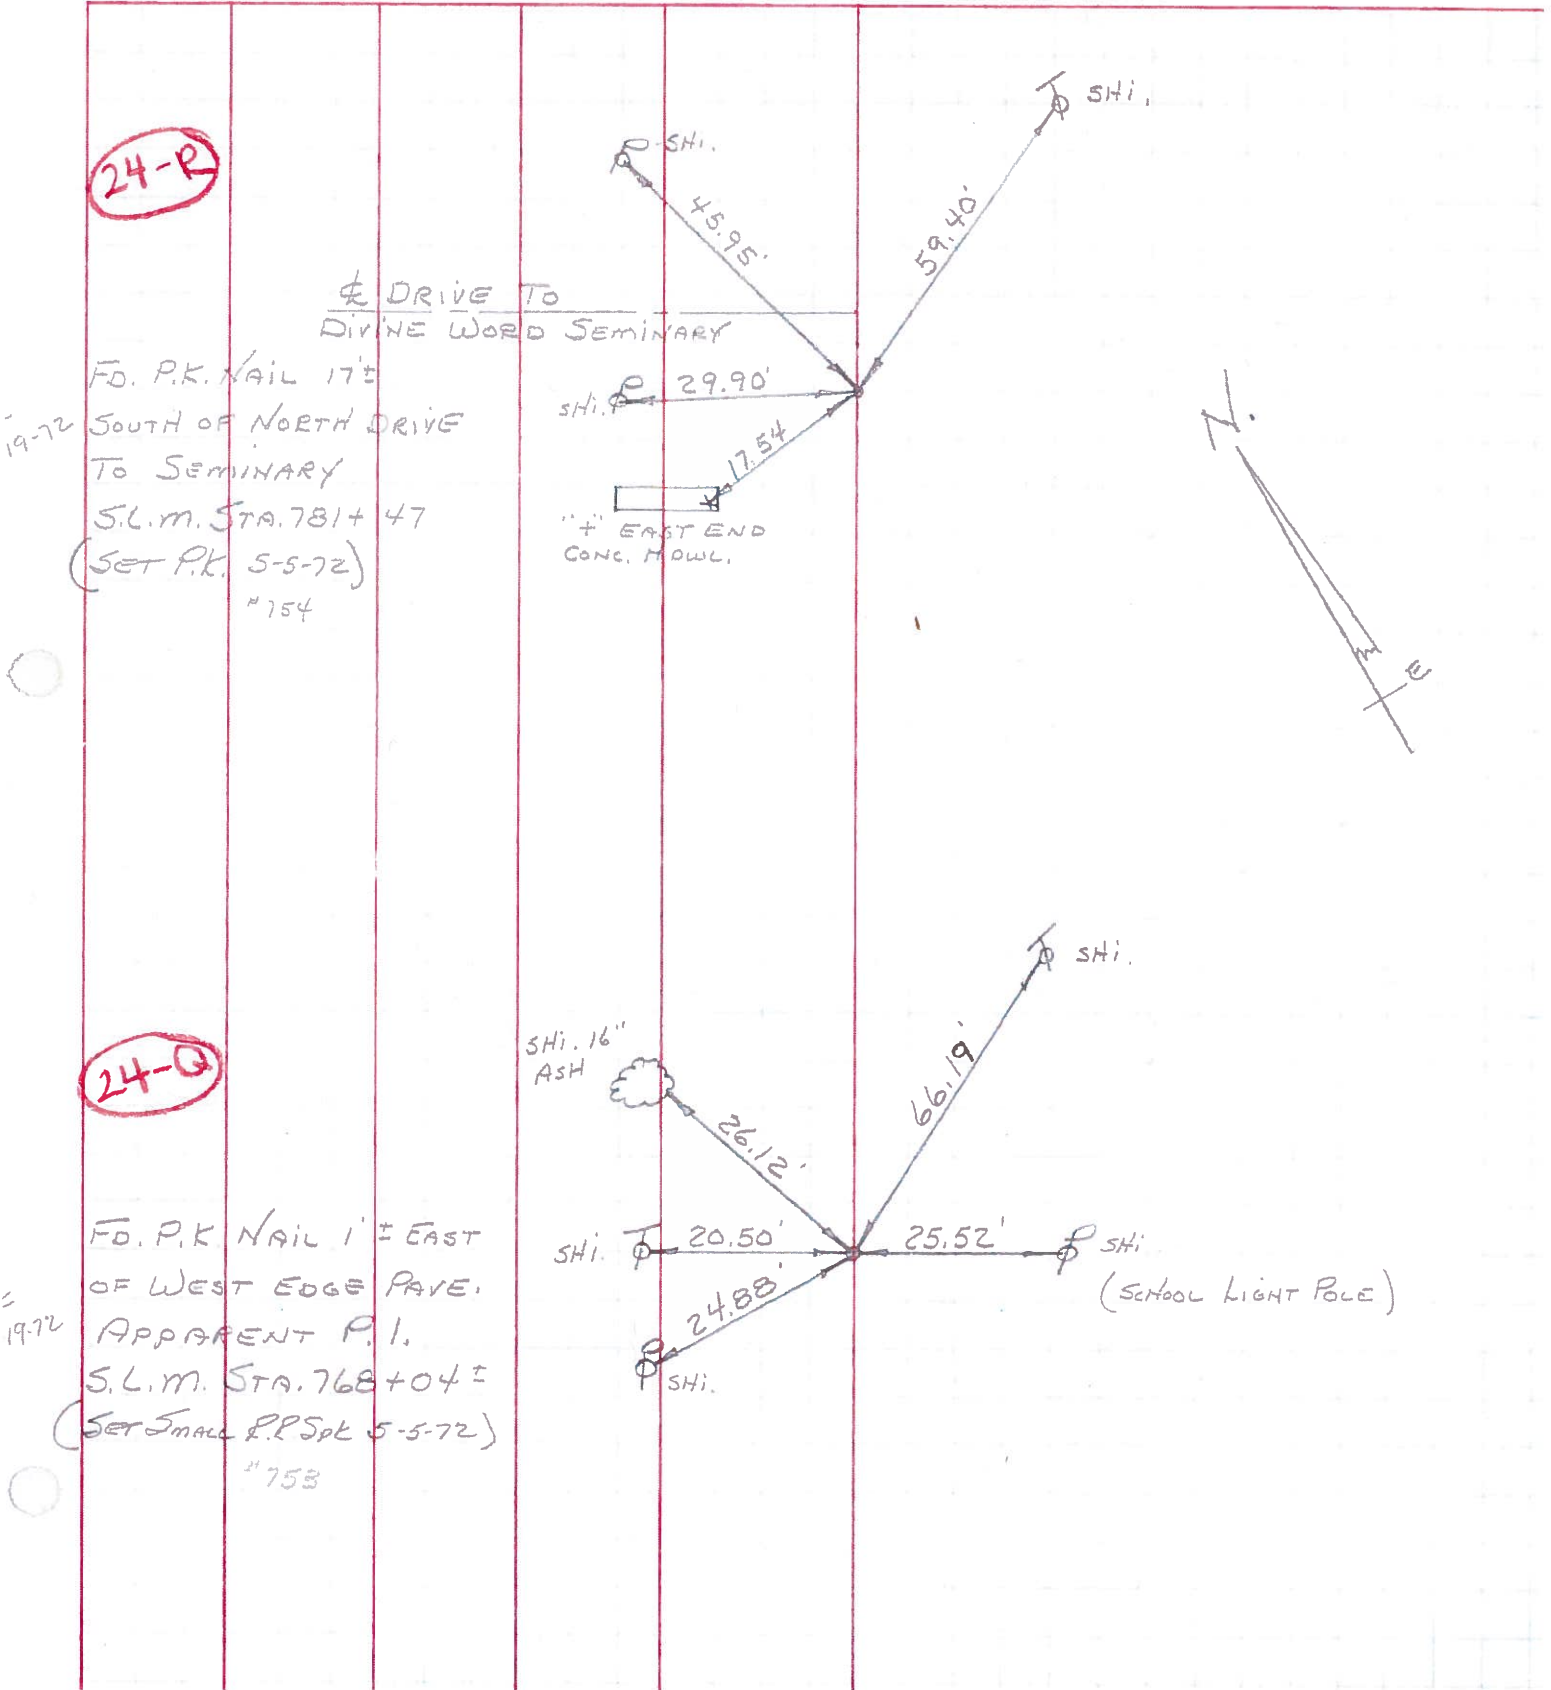 24-R
SHi.
SHi.
45.95'
59.40'
℄ DRIVE TO
DIVINE WORD SEMINARY
FD. P.K. NAIL 17'±
SOUTH OF NORTH DRIVE
19-72
TO SEMINARY
S.L.M. STA. 781+47
(SET P.K. 5-5-72)
#754
SHi.
29.90'
17.54
"+" EAST END
CONC. HDWL.
N.
E
24-Q
SHi.
SHi. 16"
ASH
26.12'
66.19'
FD. P.K. NAIL 1'± EAST
OF WEST EDGE PAVE.
19-72
APPARENT P.I.
S.L.M. STA. 768+04±
(SET SMALL R.R SPK 5-5-72)
#753
SHi.
20.50'
25.52'
SHi
(SCHOOL LIGHT POLE)
24.88'
SHi.